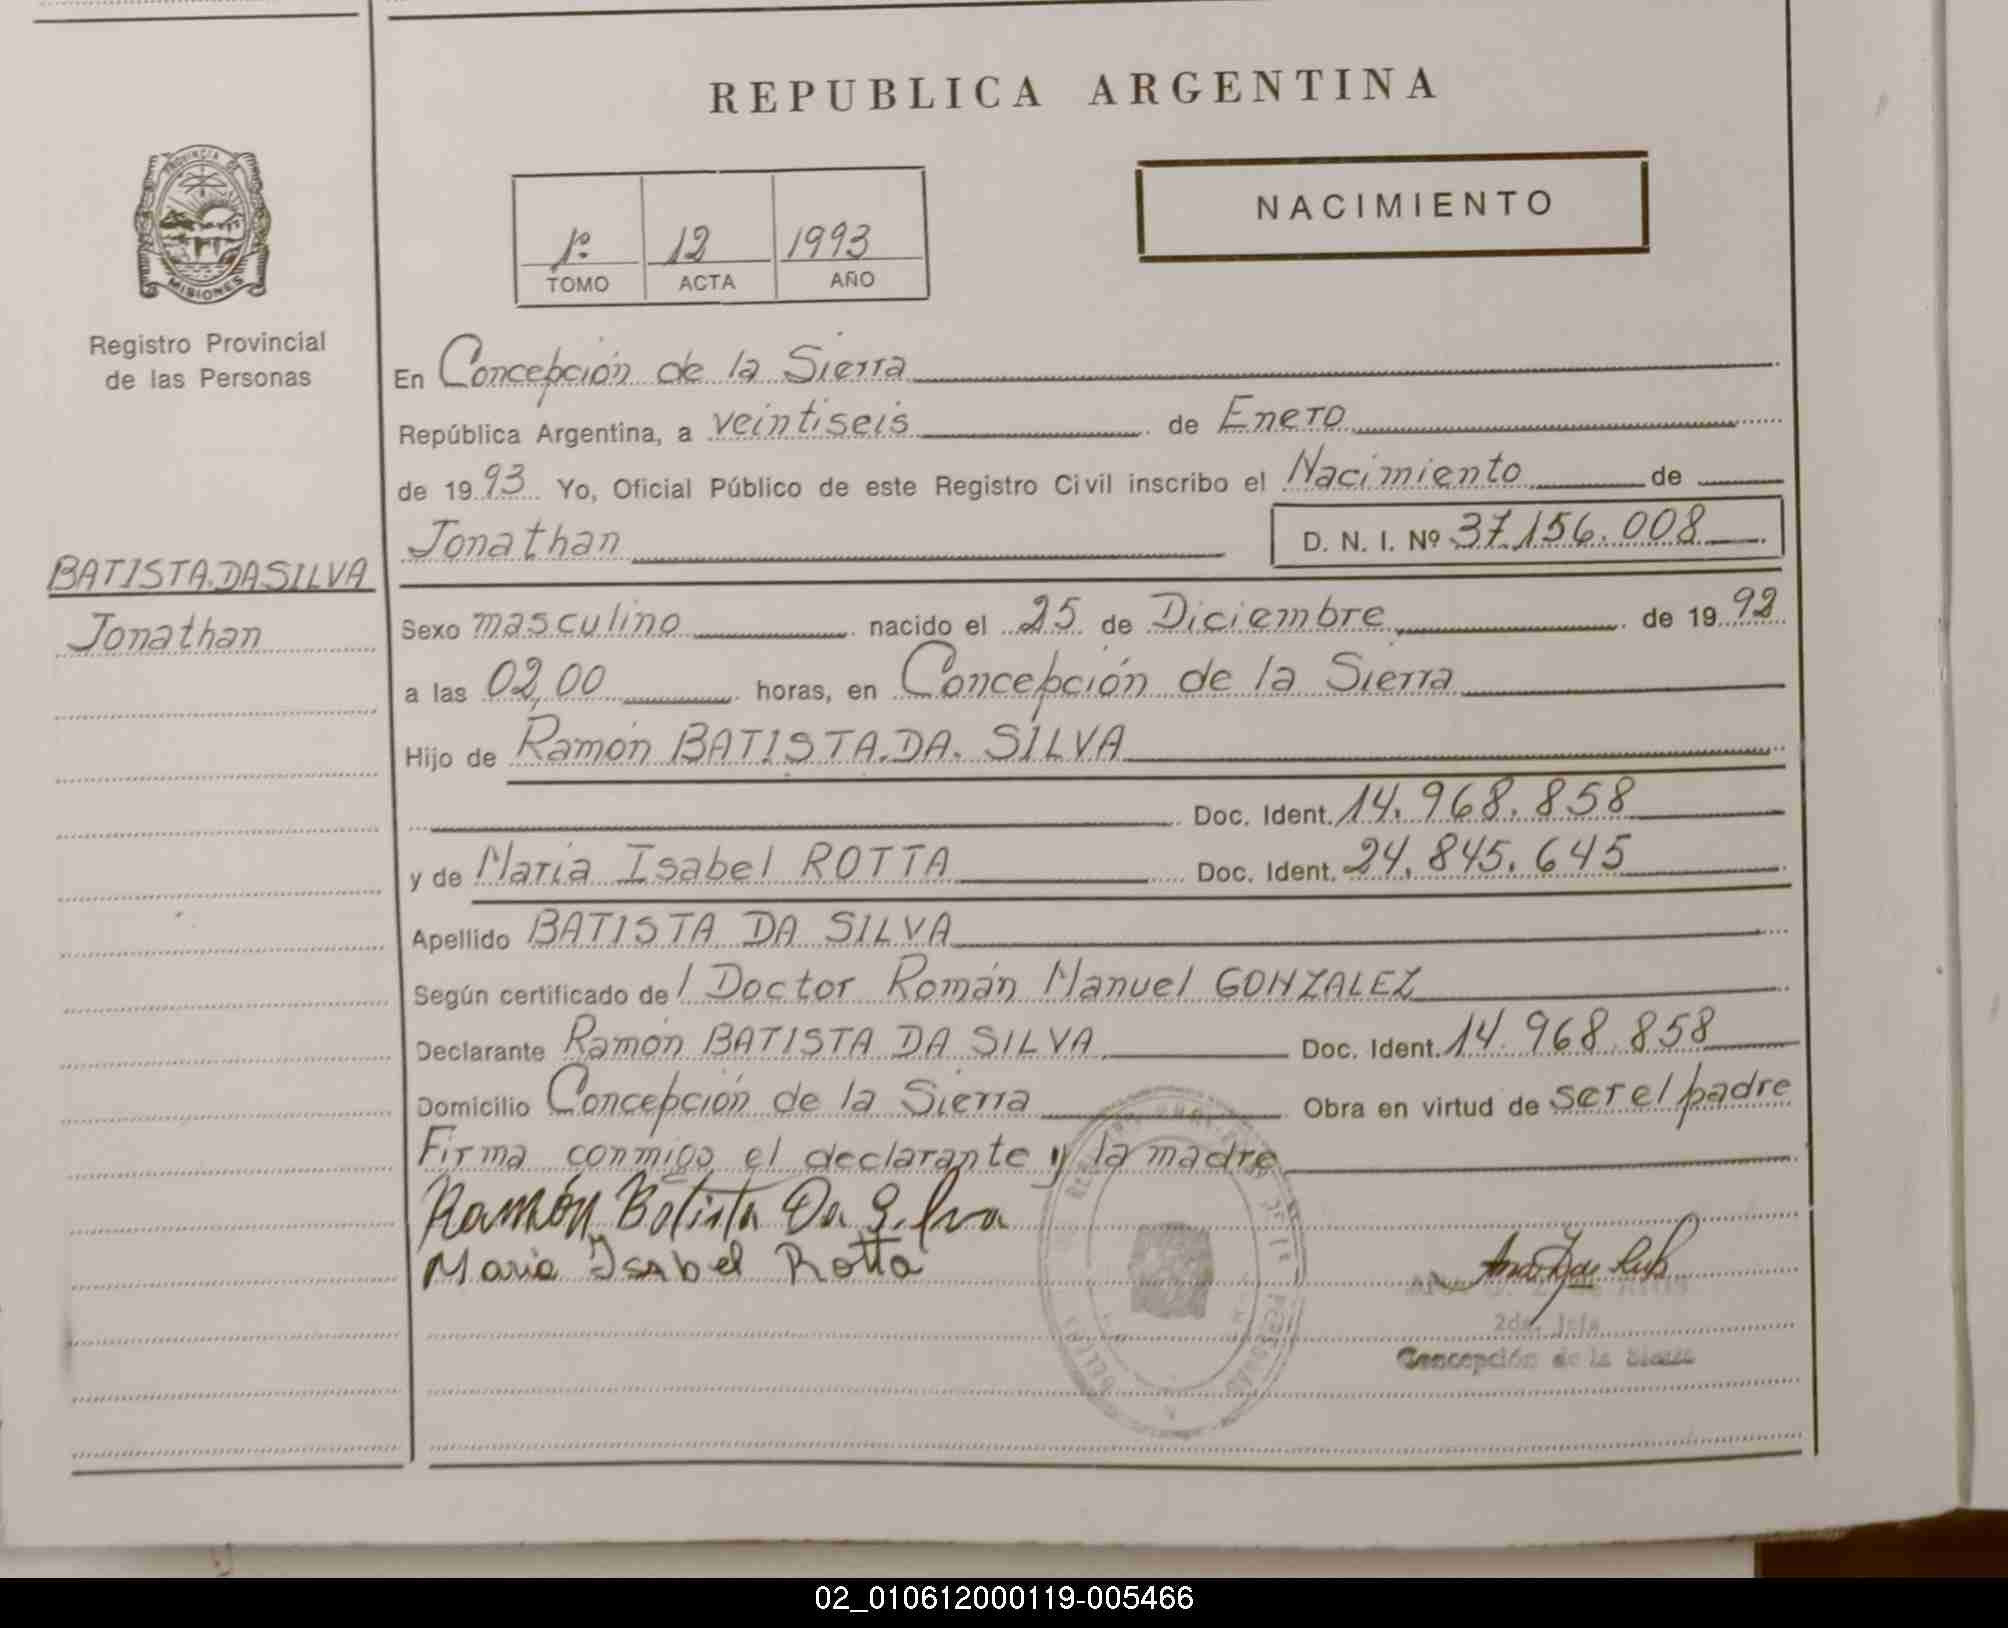 REPUBLICA ARGENTINA
PROVINCIA DE
MISIONES
Registro Provincial
de las Personas
NACIMIENTO
1º 12 1993
TOMO ACTA AÑO
En Concepción de la Sierra
República Argentina, a veintiseis de Enero
de 1993 Yo, Oficial Público de este Registro Civil inscribo el Nacimiento de
Jonathan D. N. I. Nº 37.156.008
BATISTA DA SILVA
Jonathan
Sexo masculino nacido el 25 de Diciembre de 1992
a las 02,00 horas, en Concepción de la Sierra
Hijo de Ramón BATISTA DA SILVA
Doc. Ident. 14.968.858
y de Maria Isabel ROTTA Doc. Ident. 24.845.645
Apellido BATISTA DA SILVA
Según certificado del Doctor Román Manuel GONZALEZ
Declarante Ramón BATISTA DA SILVA Doc. Ident. 14.968.858
Domicilio Concepción de la Sierra Obra en virtud de ser el padre
Firma conmigo el declarante y la madre
Ramón Batista Da Silva
Maria Isabel Rotta
2da. Jefa
Concepción de la Sierra
02_010612000119-005466